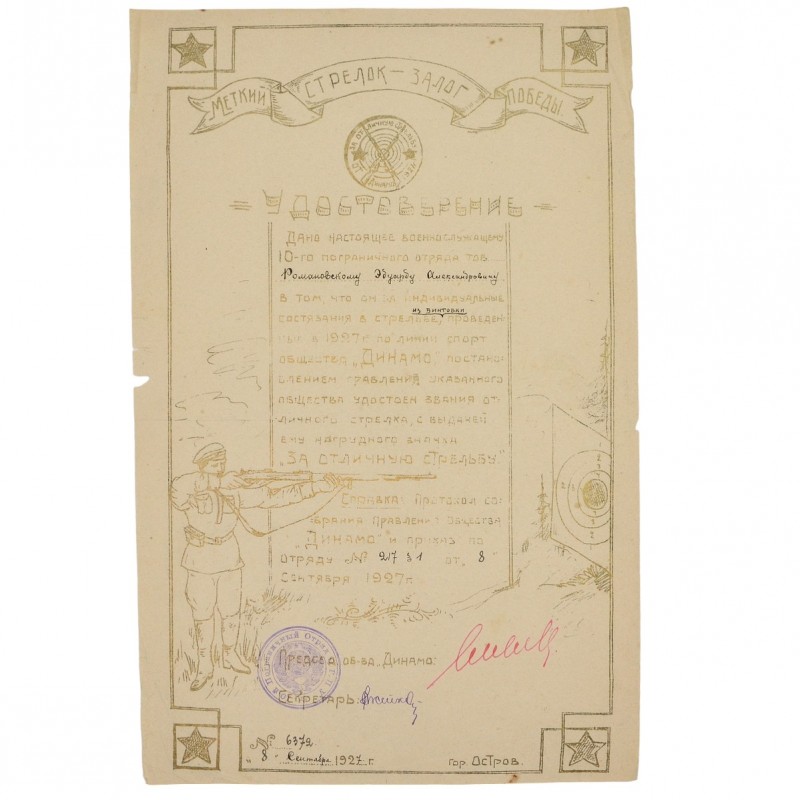 МЕТКИЙ СТРЕЛОК — ЗАЛОГ ПОБЕДЫ.
УДОСТОВЕРЕНИЕ
ДАНО НАСТОЯЩЕЕ ВОЕННОСЛУЖАЩЕМУ
10-ГО ПОГРАНИЧНОГО ОТРЯДА ТОВ.
Романовскому Эдуарду Александровичу
В ТОМ, ЧТО ОН ЗА ИНДИВИДУАЛЬНЫЕ
из винтовки
СОСТЯЗАНИЯ В СТРЕЛЬБЕ, ПРОВЕДЕН-
НЫЕ В 1927 Г. ПО ЛИНИИ СПОРТ
ОБЩЕСТВА „ДИНАМО", ПОСТАНО-
ВЛЕНИЕМ ПРАВЛЕНИЯ УКАЗАННОГО
ОБЩЕСТВА УДОСТОЕН ЗВАНИЯ ОТ-
ЛИЧНОГО СТРЕЛКА, С ВЫДАЧЕЙ
ЕМУ НАГРУДНОГО ЗНАЧКА
„ЗА ОТЛИЧНУЮ СТРЕЛЬБУ."
СПРАВКА: ПРОТОКОЛ СО-
БРАНИЯ ПРАВЛЕНИ ОБЩЕСТВА
„ДИНАМО" И ПРИКАЗ ПО
ОТРЯДУ № 217 § 1 ОТ „8"
СЕНТЯБРЯ 1927 Г.
ПРЕДСЕД. ОБ-ВА „ДИНАМО:
СЕКРЕТАРЬ:
№ 6372
„8" Сентября 1927 г.
ГОР. ОСТРОВ.